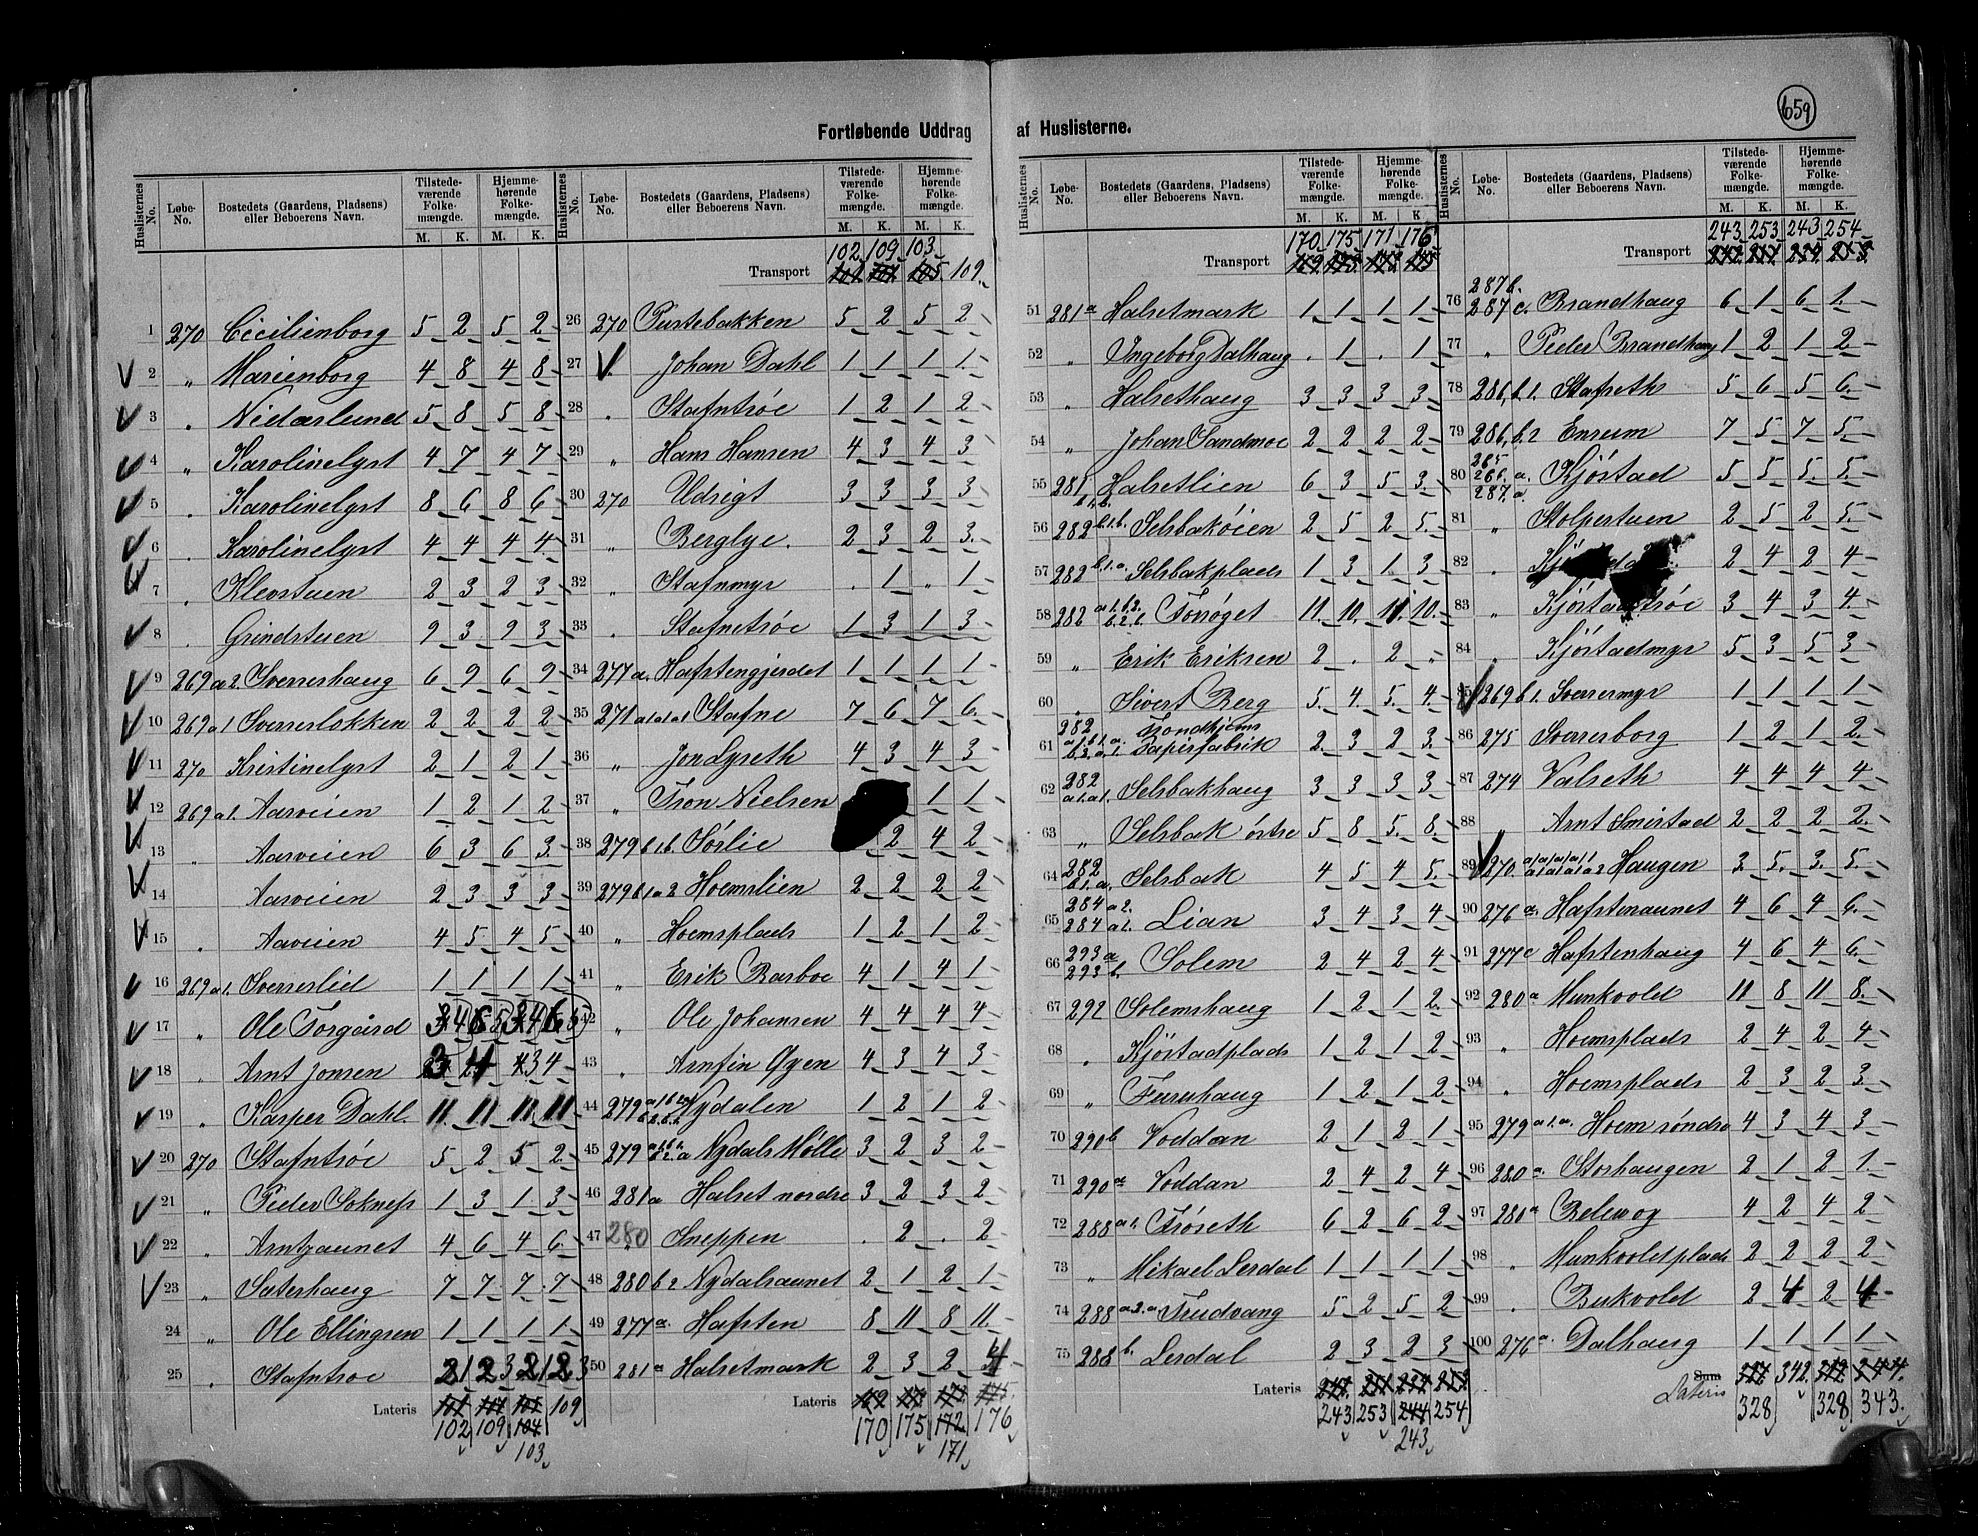 659
Fortløbende Uddrag af Huslisterne.
Huslisternes No. Løbe-No. Bostedets (Gaardens, Pladsens) eller Beboerens Navn. Tilstedeværende Folkemængde. M. K. Hjemmehørende Folkemængde. M. K.
1 270 Cicilienborg 5 2 5 2
2 " Marienborg 4 8 4 8
3 " Nidarlund 5 8 5 8
4 " Karolinelyst 4 7 4 7
5 " Karolinelyst 8 6 8 6
6 " Karolinelyst 4 4 4 4
7 " Klevstuen 2 3 2 3
8 " Grindstuen 9 3 9 3
9 269 a 2. Sverreshaug 6 9 6 9
10 269 a 1 Sverresløkken 2 2 2 2
11 270 Kristinelyst 2 1 2 1
12 269 a 1. Aasveien 1 2 1 2
13 " Aasveien 6 3 6 3
14 Aasveien 2 3 3 3
15 " Aaveien 4 5 4 5
16 269 a 1. Sverreslid 1 1 1 1
17 " Ole Torgård
18 " Arnt Jonsen
19 " Kasper Dahl. 11 11 11 11
20 270 Stafntrøe 5 2 5 2
21 " Peder Sokness 1 3 1 3
22 " Arntzaunet 4 6 4 6
23 " Sæterhaug 7 7 7 7
24 " Ole Ellingsen 1 1 1 1
25 " Stafntrøe
Lateris 109
102 109 104
103
Huslisternes No. Løbe-No. Bostedets (Gaardens, Pladsens) eller Beboerens Navn. Tilstedeværende Folkemængde. M. K. Hjemmehørende Folkemængde. M. K.
102 109 103
Transport 109
26 270 Pustebakken 5 2 5 2
27 Johan Dahl 1 1 1 1
28 " Stafntrøe 1 2 1 2
29 " Hans Hansen 4 3 4 3
30 270 Udsigt 3 3 3 3
31 " Berglye. 2 3 2 3
32 " Stafnmyr . 1 " 1
33 " Stafnetrøe 1 3 1 3
34 277 a. Hafstengjerdet 1 1 1 1
35 271 a1a1a1 Stafne 7 6 7 6
36 " Jon Lyseth 4 3 4 3
37 " Tron Nielsen 1 1
38 279 b 1 b. Sørlie 2 4 2
39 279 b 1 a 2 Hoemslien 2 2 2 2
40 " Hoemsplads 1 2 1 2
41 " Erik Barboe 4 1 4 1
42 " Ole Johansen 4 4 4 4
43 " Arnfin Øyen 4 3 4 3
44 279 Nydalen 1 2 1 2
45 279 Nydals Mølle 3 2 3 2
46 281 a Halset nordre 3 2 3 2
47 280 Sneppen . 2 . 2
48 280 b 2 Nydalsaunet 2 1 2 1
49 277 a. Hafsten 8 11 8 11
50 281 a Halsetmark 2 3 2 4
Lateris
170 175 172 176
171
Huslisternes No. Løbe-No. Bostedets (Gaardens, Pladsens) eller Beboerens Navn. Tilstedeværende Folkemængde. M. K. Hjemmehørende Folkemængde. M. K
170 175 171 176
Transport
51 281 a Halsetmark 1 1 1 1
52 " Ingeborg Dalhaug . 1 . 1
53 " Halsethaug 3 3 3 3
54 " Johan Sandmoe 2 2 2 2
55 281 b.1.b. Halsetlien 6 3 5 3
56 282 b.1.b. Selsbakøien 2 5 2 5
57 282 b.1.a. Selsbakplads 1 3 1 3
58 282 Forsøget 11 10 11 10
59 " Erik Eriksen 2 . 2 "
60 " Sivert Berg 5 4 5 4
61 282 Trondhjems Papirfabrik 2 3 2 3
62 282 a1.a1. Selsbakhaug 3 3 3 3
63 " Selsbak østre 5 8 5 8
64 282 b.1.a. Selsbak 4 5 4 5
65 284 a 2. 284 a 1. Lian 3 4 3 4
66 293 a 293 b. Solem 2 4 2 4
67 292 Solemshaug 1 2 1 2
68 " Kjøstadplads 1 2 1 2
69 " Furuhaug 1 2 1 2
70 290 b Voddan 2 1 2 1
71 290 a Voddan 2 4 2 4
72 288 a 1. Frøseth 6 2 6 2
73 " Mikael Lerdal 1 1 1 1
74 288 a 2. a Trudvang 5 2 5 2
75 288 b. Lerdal 2 3 2 3
Lateris
243 253 244 254
243
Huslisternes No. Løbe-No. Bostedets (Gaardens, Pladsens) eller Beboerens Navn. Tilstedeværende Folkemængde. M. K. Hjemmehørende Folkemængde. M. K.
243 253 243 254
Transport
76 287 b. 287 c. Brandhaug 6 1 6 1
77 " Peder Brandhaug 1 2 1 2
78 286, b 1. Stafseth 5 6 5 6
79 286, b. 2 Enrum 7 5 7 5
80 285 286. a. 287. a. Kjøstad 5 5 5 5
81 " Stolpertuen 2 5 2 5
82 " 2 4 2 4
83 " Kjøstadtrøe 3 4 3 4
84 Kjøstadmyr 5 3 5 3
85 269 b 1. Sverresmyr 1 1 1 1
86 275 Sverresborg 1 2 1 2
87 274 Valseth 4 4 4 4
88 Arnt Smistad 2 2 2 2
89 270. Haugen 3 5 3 5
90 276 a. Hafstenaunet 4 6 4 6
91 277 c Hafstenhaug 4 6 4 6
92 280 a Munkvold 11 8 11 8
93 " Hoemsplads 2 4 2 4
94 " Hoemsplads 2 3 2 3
95 279 a.1.a. Hoem søndre 4 3 4 3
96 280 a. Storhaugen 2 1 2 1
97 280 a Belevog 4 2 4 2
98 " Munkvoldsplads 2 2 2 2
99 " Bukvold 2 4 2 4
100 276 a. Dalhaug 1 1 1 1
Sum 342
Lateris 328 328 343.